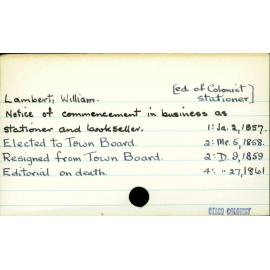 [ed. of Colonist
Lambert, William. stationer]
Notice of commencement in business as
stationer and bookseller. 1: Ja. 2, 1857.
Elected to Town Board. 2: Mr. 5, 1858.
Resigned from Town Board. 2: D. 9, 1859
Editorial on death. 4: " 27, 1861
COLONIST